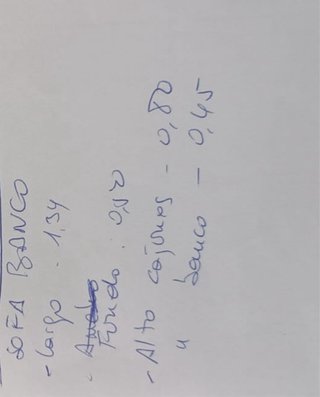 SOFA BANCO
- Largo - 1,34
- Fondo: 0,50
- Alto cajones - 0,80
" banco - 0,45